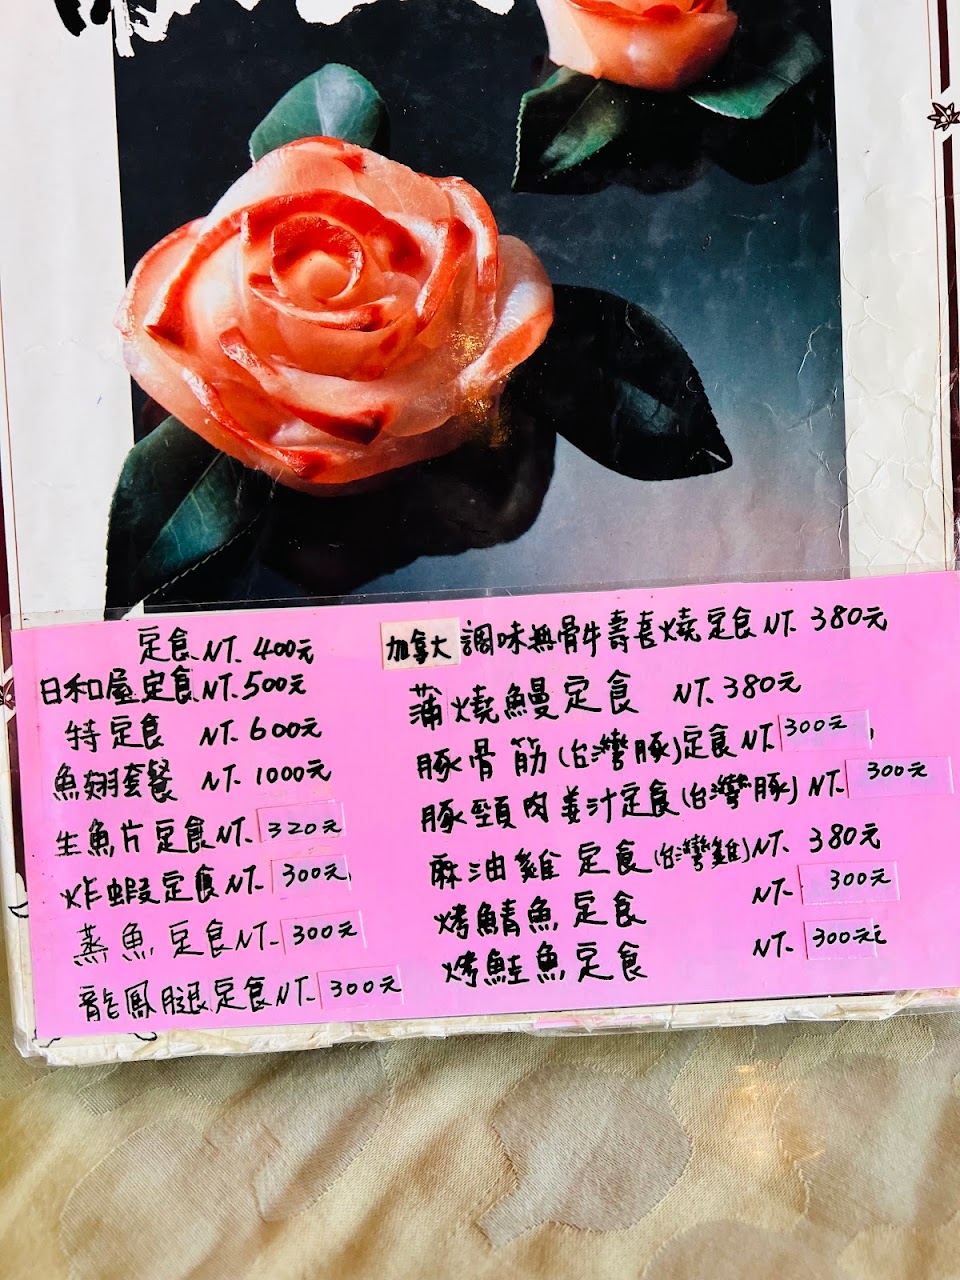 定食NT.400元
日和屋定食NT.500元
特定食 NT.600元
魚翅套餐 NT.1000元
生魚片定食NT.320元
炸蝦定食NT.300元
蒸魚定食NT.300元
龍鳳腿定食NT.300元
加拿大調味無骨牛壽喜燒定食NT.380元
蒲燒鰻定食 NT.380元
豚骨筋(台灣豚)定食NT.300元
豚頸肉姜汁定食(台灣豚)NT.300元
麻油雞定食(台灣雞)NT.380元
烤鯖魚定食 NT.300元
烤鮭魚定食 NT.300元